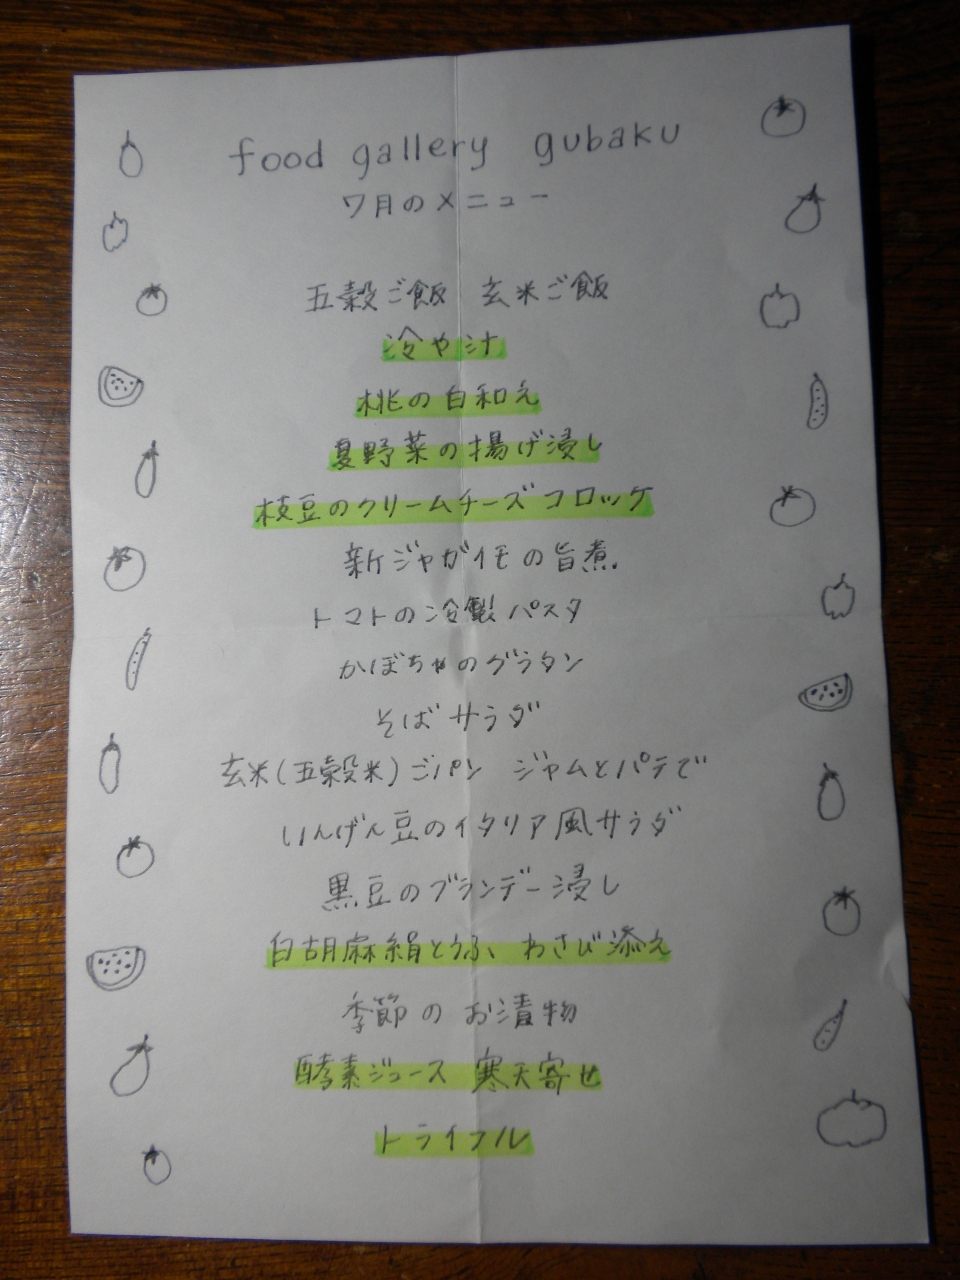 food gallery gubaku
7月のメニュー
五穀ご飯 玄米ご飯
冷や汁
桃の白和え
夏野菜の揚げ浸し
枝豆のクリームチーズコロッケ
新ジャガイモの旨煮
トマトの冷製パスタ
かぼちゃのグラタン
そばサラダ
玄米(五穀米)ごパン ジャムとパテで
いんげん豆のイタリア風サラダ
黒豆のブランデー浸し
白胡麻絹とうふ わさび添え
季節のお漬物
酵素ジュース 寒天寄せ
トライフル